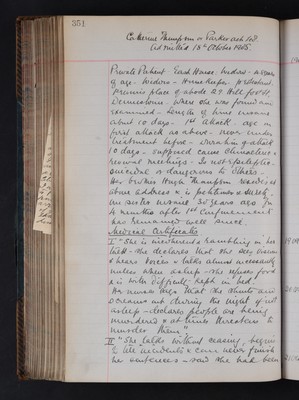 351
Catherine Thompson or Parker
Admitted 18th October 1905.
Private Patient East House. Widow
of age. Widow - Housekeeper.
Previous place of abode 29 Hill foot St.
Dennistoun. Where she was found and
examined - length of time insane
about 10 days. 1st Attack. age on
first attack as above - never under
treatment before - duration of attack
10 days - supposed cause
revival meetings. Is not epileptic.
suicidal & dangerous to others.
Her brother Hugh Thompson residing at
above address
one sister insane 30 years ago for
months after 1st Confinement
has remained well since.
Medical Certificates
I "She is incoherent & rambling in her
talk - she declares that she sees visions
& hears voices & talks almost incessantly
unless when asleep - she refuses food
& is with difficulty kept in bed.
Her nurse says that she shouts and
screams out during the night if not
asleep - declares people are being
murdered & at times threatens to
murder them".
II "She talks without ceasing, begins
to tell incidents & can never finish
her sentences - said she had been